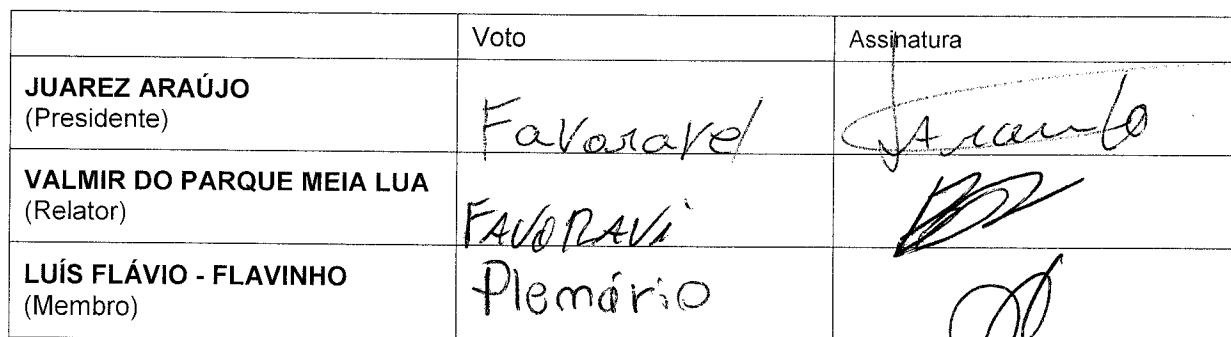 Voto Assinatura
JUAREZ ARAÚJO
(Presidente)
Favoravel
VALMIR DO PARQUE MEIA LUA
(Relator)
FAVORAVi
LUÍS FLÁVIO - FLAVINHO
(Membro)
Plemário